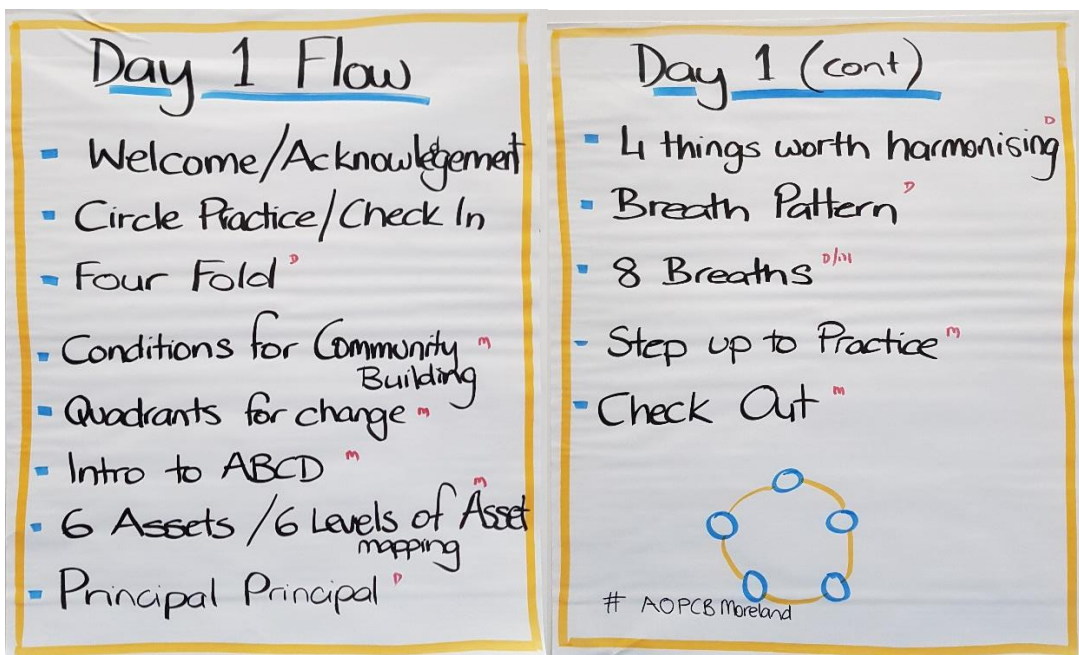 Day 1 Flow
- Welcome/Acknowledgement
- Circle Practice/Check In
- Four Fold D
- Conditions for Community m
Building
- Quadrants for change m
- Intro to ABCD m
- 6 Assets /6 Levels of Asset m
mapping
- Principal Principal D
Day 1 (cont)
- 4 things worth harmonising D
- Breath Pattern D
- 8 Breaths D/m
- Step up to Practice m
- Check Out m
# AOPCBMoreland